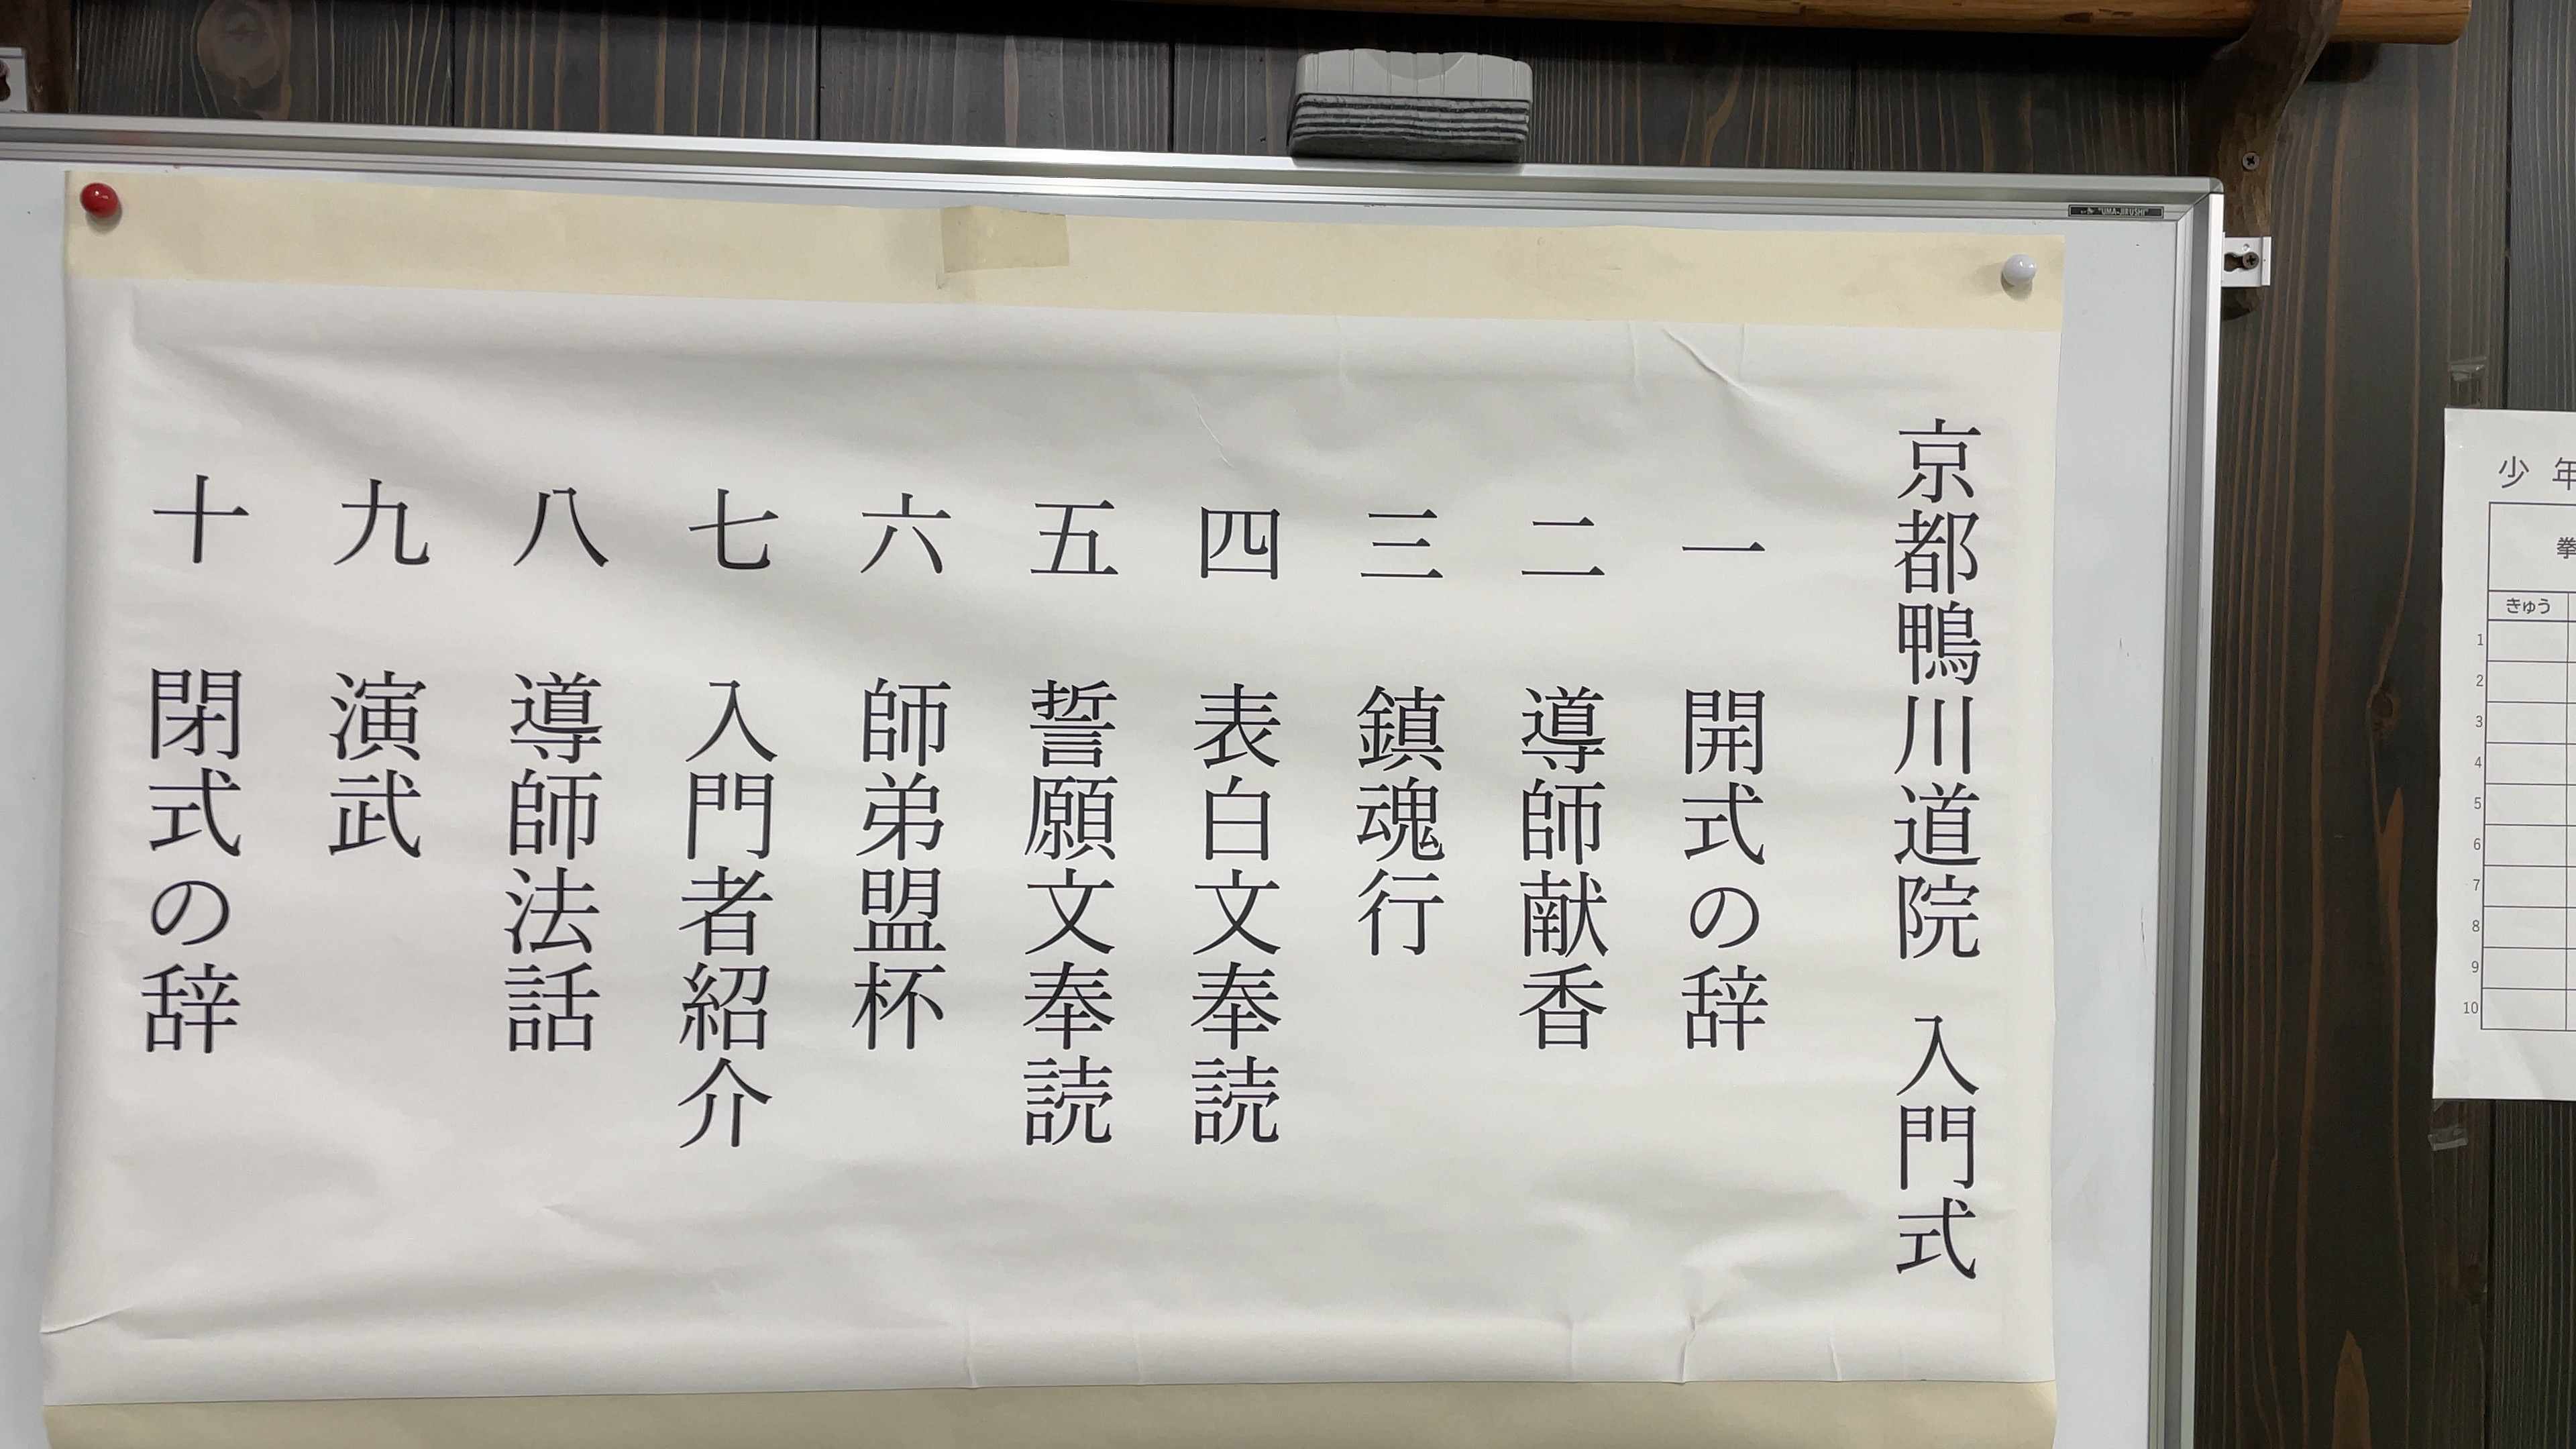 京都鴨川道院 入門式
一 開式の辞
二 導師献香
三 鎮魂行
四 表白文奉読
五 誓願文奉読
六 師弟盟杯
七 入門者紹介
八 導師法話
九 演武
十 閉式の辞
"UMA-JIRUSHI"
少年
拳
きゅう
1
2
3
4
5
6
7
8
9
10